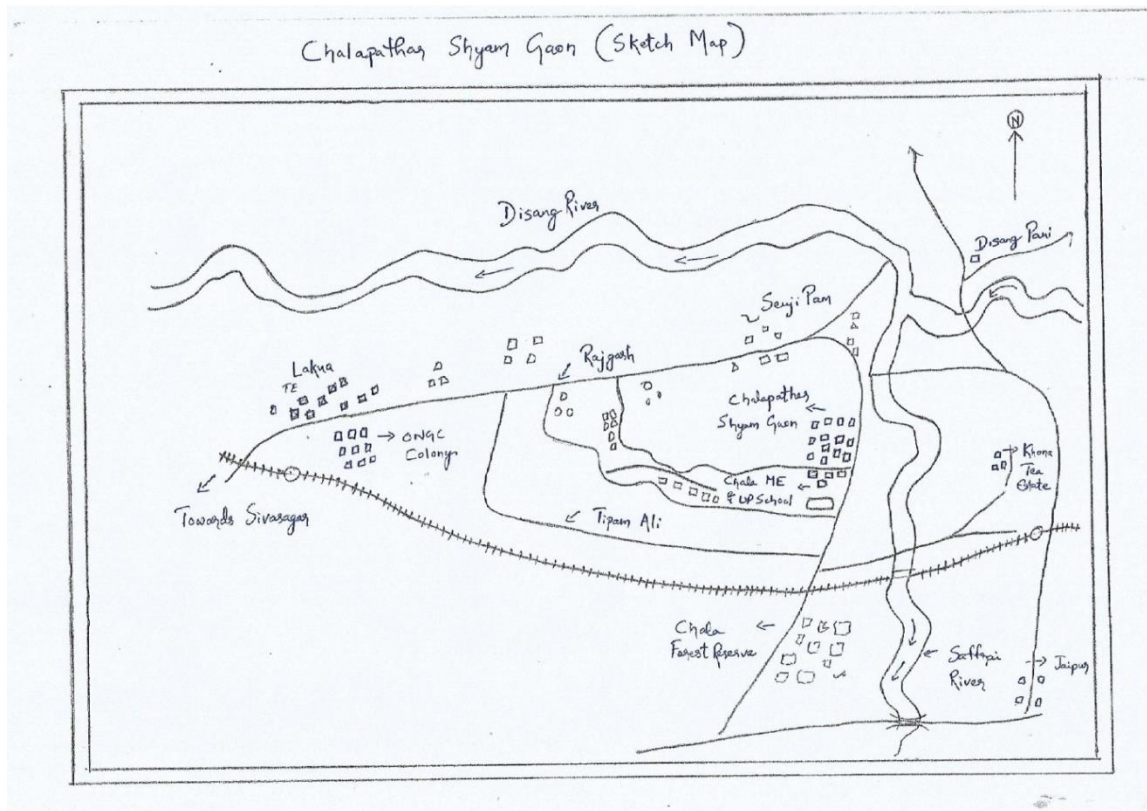 Chalapathar Shyam Gaon (Sketch Map)
N
Disang River
Disang Pani
Senji Pam
Rajgarh
Lakua
TE
Chalapathar
Shyam Gaon
ONGC
Colony
Khona
Tea
Estate
Chala ME
& UP School
Towards Sivasagar
Tipam Ali
Chala
Forest Reserve
Saffrai
River
Jaipur